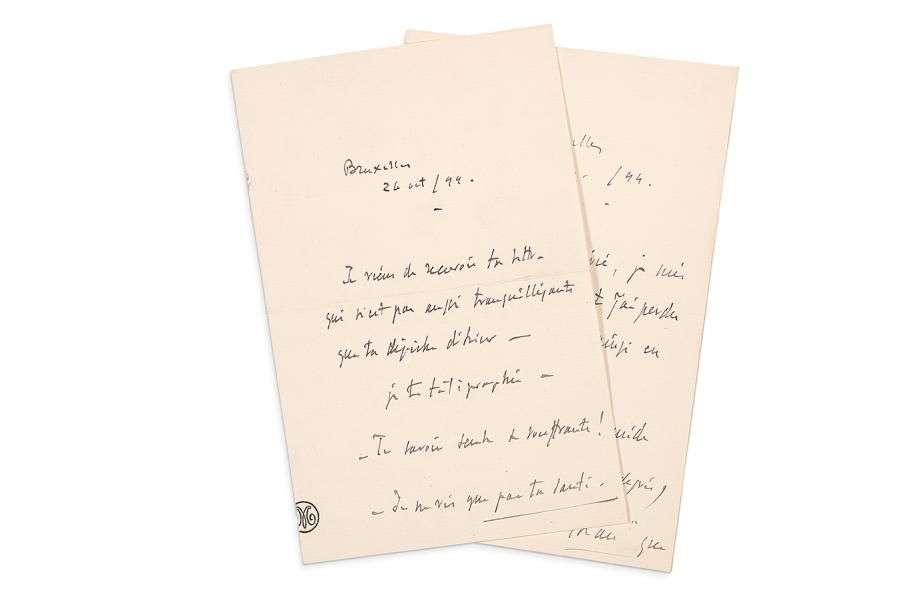 Bruxelles
26 oct / 94.
Je viens de recevoir ta lettre
qui n'est pas aussi tranquillisante
que ta dépêche d'hier —
je te télégraphie —
– Te savoir seule et souffrante!
– Je ne vis que par ta santé.
lles
/ 94.
, je suis
t j'ai perdu
en
que